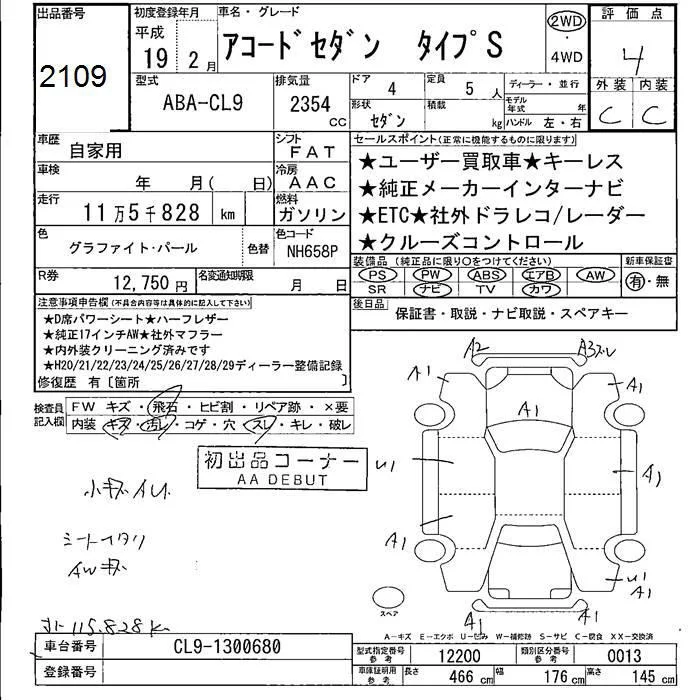 出品番号 初度登録年月 車名・グレード 評価点
平成 アコードセダン タイプS 2WD
2109 19 2月 ・ 4
4WD
型式 排気量 ドア 4 定員 5人 ディーラー・並行 外装 内装
ABA-CL9 2354 CC 形状 セダン 積載 kg モデル年式 年 C C
ハンドル 左・右
車歴 自家用 シフト FAT セールスポイント(正常に機能するものに限ります)
車検 年 月( 日) 冷房 AAC ★ユーザー買取車★キーレス
走行 11万5千828 km 燃料 ガソリン ★純正メーカーインターナビ
★ETC★社外ドラレコ/レーダー
色 グラファイト・パール 色替 色コード NH658P ★クルーズコントロール
装備品 (純正品に限り○をつけてください) 新車保証書
R券 12,750円 名変通知期限 月 日 PS PW ABS エアB AW 有・無
SR ナビ TV カワ
注意事項申告欄(不具合内容等は具体的に記入して下さい) 後日品
★D席パワーシート★ハーフレザー 保証書・取説・ナビ取説・スペアキー
★純正17インチAW★社外マフラー
★内外装クリーニング済みです
★H20/21/22/23/24/25/26/27/28/29ディーラー整備記録
修復歴 有〔箇所 〕
A2 A3ズレ
A1 A1
検査員記入欄 FW キズ・飛石・ヒビ割・リペア跡・×要
内装 キズ・汚レ・コゲ・穴・スレ・キレ・破レ
A1
初出品コーナー
AA DEBUT
U1 A1
小キズAU
シートヘタリ
AWキズ
A1 U1
A1
スペア
A1 A1
A-キズ E-エクボ U-凹み W-補修跡 S-サビ C-腐食 XX-交換済
115.828K
車台番号 CL9-1300680 型式指定番号 参考 12200 類別区分番号 参考 0013
登録番号 車庫証明用 参考 長さ 466cm 幅 176cm 高さ 145cm